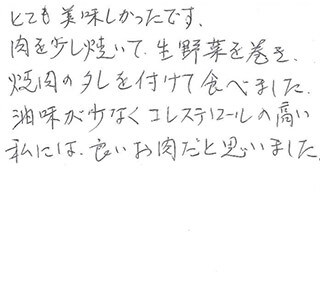 とても美味しかったです。
肉を少し焼いて、生野菜を巻き、
焼肉のタレを付けて食べました。
油味が少なくコレステロールの高い
私には、良いお肉だと思いました。